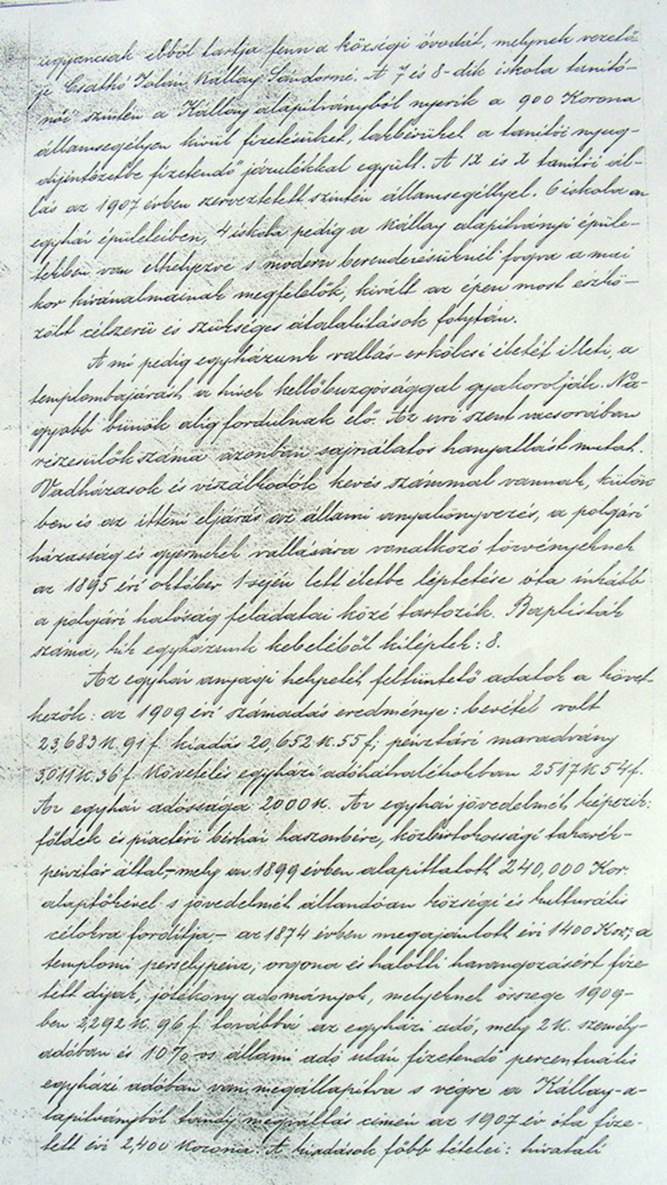 ugyancsak ebből tartja fenn a községi óvodát, melynek vezető-
je Csathó Jolán Kállay Sándorné. A 7 és 8-dik iskola tanító-
női szintén a Kállay alapítványból nyerik a 900 Korona
államsegélyen kívül fizetésüket, lakbérüket a tanítói nyug-
díjintézetbe fizetendő járulékkal együtt. A IX és X tanítói ál-
lás az 1907 évben szerveztetett szintén államsegéllyel. 6 iskola az
egyház épületeiben, 4 iskola pedig a Kállay alapítványi épüle-
tekben van elhelyezve s modern berendezésüknél fogva a mai
kor kívánalmainak megfelelők, kivált az épen most eszkö-
zölt célszerű és szükséges átalakítások folytán.
A mi pedig egyházunk vallás-erkölcsi életét illeti, a
templombajárást a hívek kellő buzgósággal gyakorolják. Na-
gyobb bűnök alig fordulnak elő. Az úri szent vacsorában
részesülők száma azonban sajnálatos hanyatlást mutat.
Vadházasok és vizálkodók kevés számmal vannak, külön-
ben is az itteni eljárás az állami anyakönyvezés, a polgári
házasság és gyermekek vallására vonatkozó törvényeknek
az 1895 évi október 1-sején lett életbe léptetése óta inkább
a polgári hatóság feladatai közé tartozik. Baptisták
száma, kik egyházunk kebeléből kiléptek: 8.
Az egyház anyagi helyzetét feltüntető adatok a követ-
kezők: az 1909 évi számadás eredménye: bevétel volt
23,683 K. 91 f. kiadás 20,652 K. 55 f; pénztári maradvány
3011 K. 36 f. Követelés egyházi adóhátralékokban 2517 K 54 f.
Az egyház adóssága 2000 K. Az egyház jövedelmét képezik:
földek és piactéri bérház haszonbére, közbirtokossági takarék-
pénztár által,- mely az 1899 évben alapíttatott 240,000 Kor.
alaptőkével s jövedelmét állandóan községi és kulturális
célokra fordítja - az 1874 évben megajánlott évi 1400 Kor; a
templomi perselypénz, orgona és halotti harangozásért fize
tett díjak, jótékony adományok, melyeknek összege 1909-
ben 2,292 K. 96 f. továbbá az egyházi adó, mely 2 K. személy-
adóban és 10%-os állami adó után fizetendő percentuális
egyházi adóban van megállapítva s végre a Kállay-a-
lapítványból tandíj megváltás címén az 1907 év óta fize-
tett évi 2,400 korona. A kiadások főbb tételei: hivatali